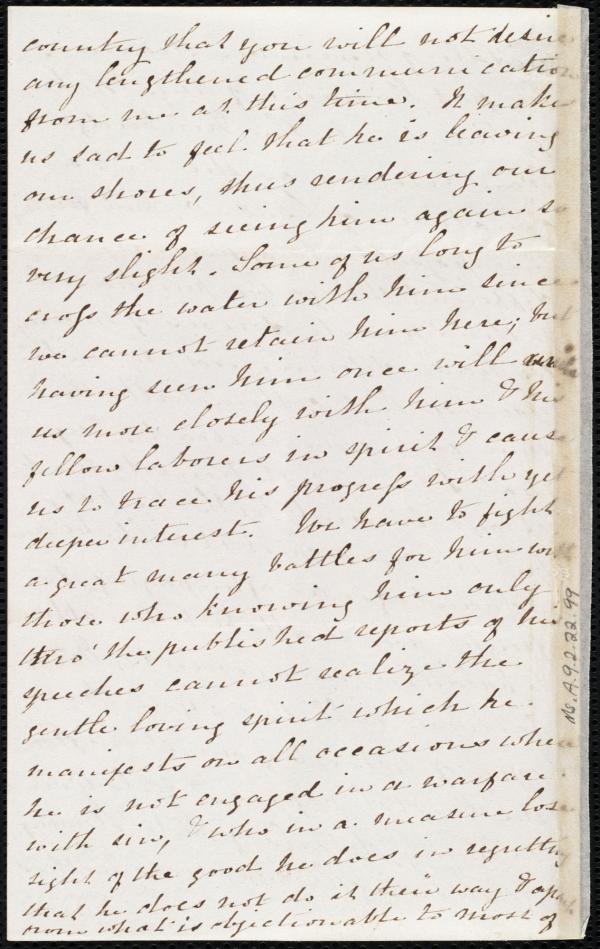 country that you will not desire
any lengthened communication
from me at this time. It makes
us sad to feel that he is leaving
our shores, thus rendering our
chance of seeing him again so
very slight. Some of us long to
cross the water with him since
we cannot retain him here; but
having seen him once will
us more closely with him & his
fellow laborers in spirit & cause
us to trace his progress with yet
deeper interest. We have to fight
a great many battles for him with
those who knowing him only
thro' the published reports of his
speeches cannot realize the
gentle loving spirit which he
manifests on all occasions when
he is not engaged in a warfare
with sin, & who in a measure lose
sight of the good he does in regretting
that he does not do it their way & apart
from what is objectionable to most of
Ms.A.9.2.22.99